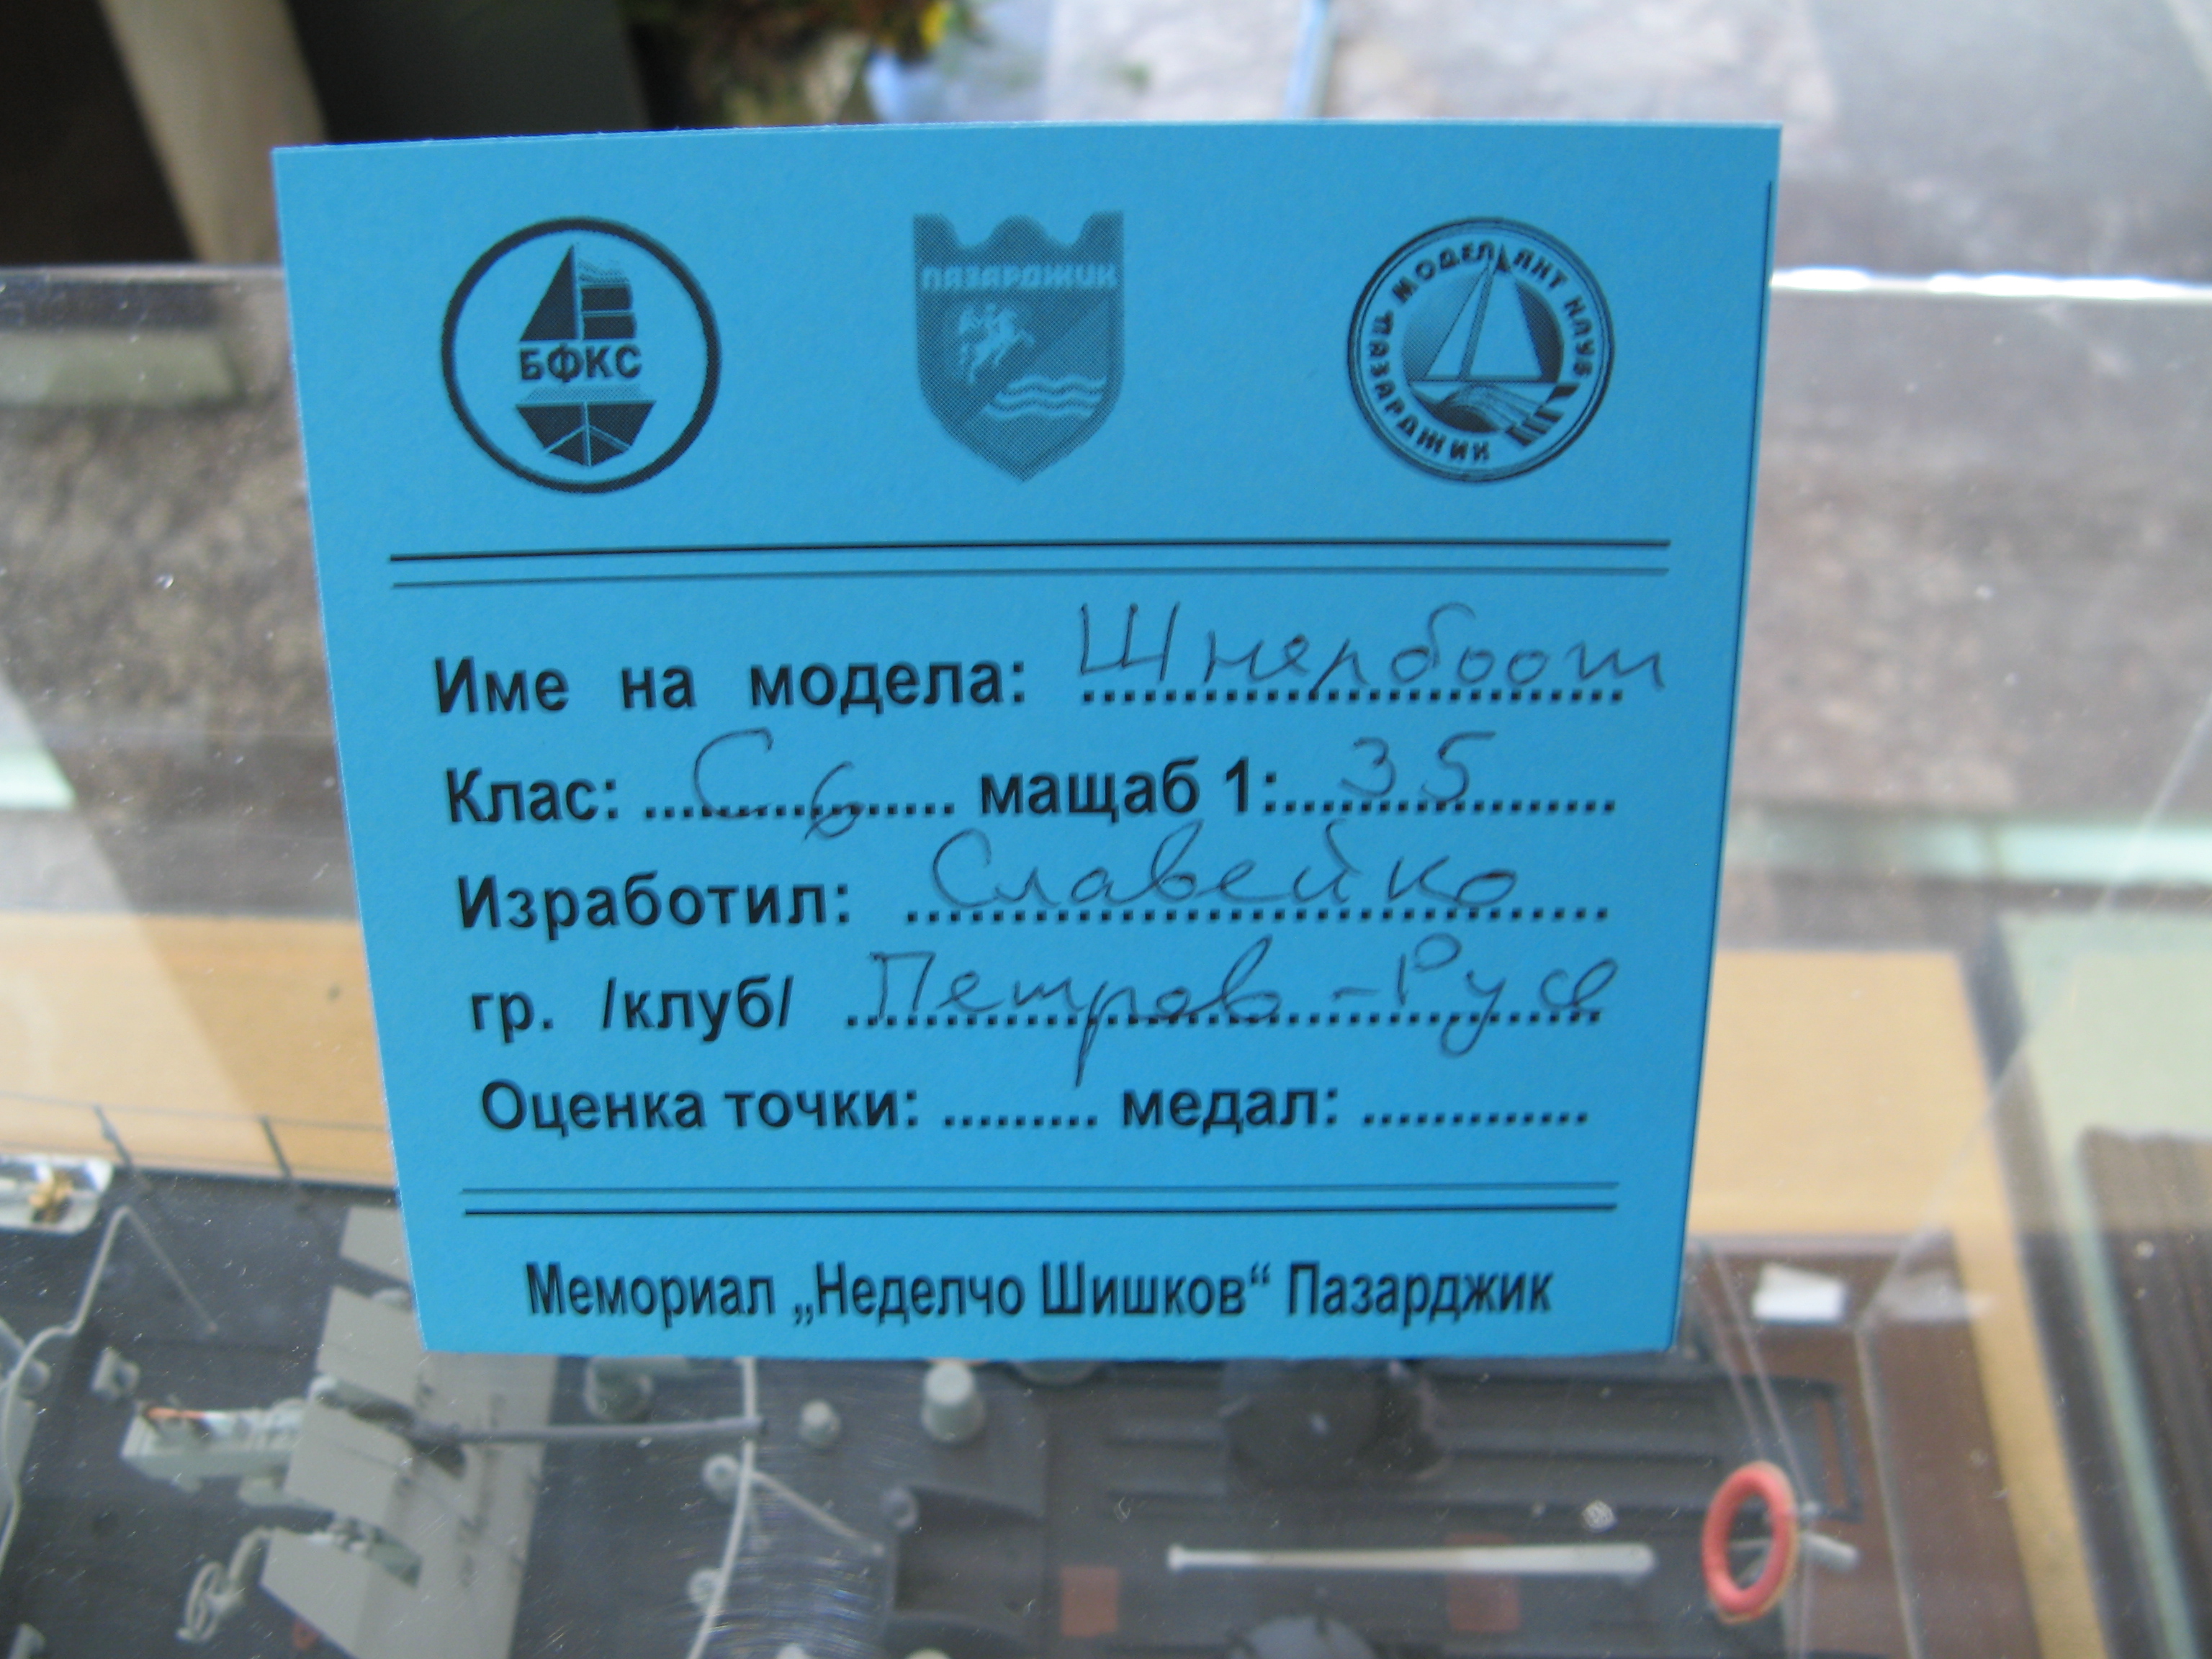 БФКС
ПАЗАРДЖИК
МОДЕЛ ЯХТ КЛУБ
ПАЗАРДЖИК
Име на модела: Шнелбоот
Клас: С6 мащаб 1: 35
Изработил: Славейко
гр. /клуб/ Петров - Русе
Оценка точки: ......... медал: .............
Мемориал „Неделчо Шишков“ Пазарджик